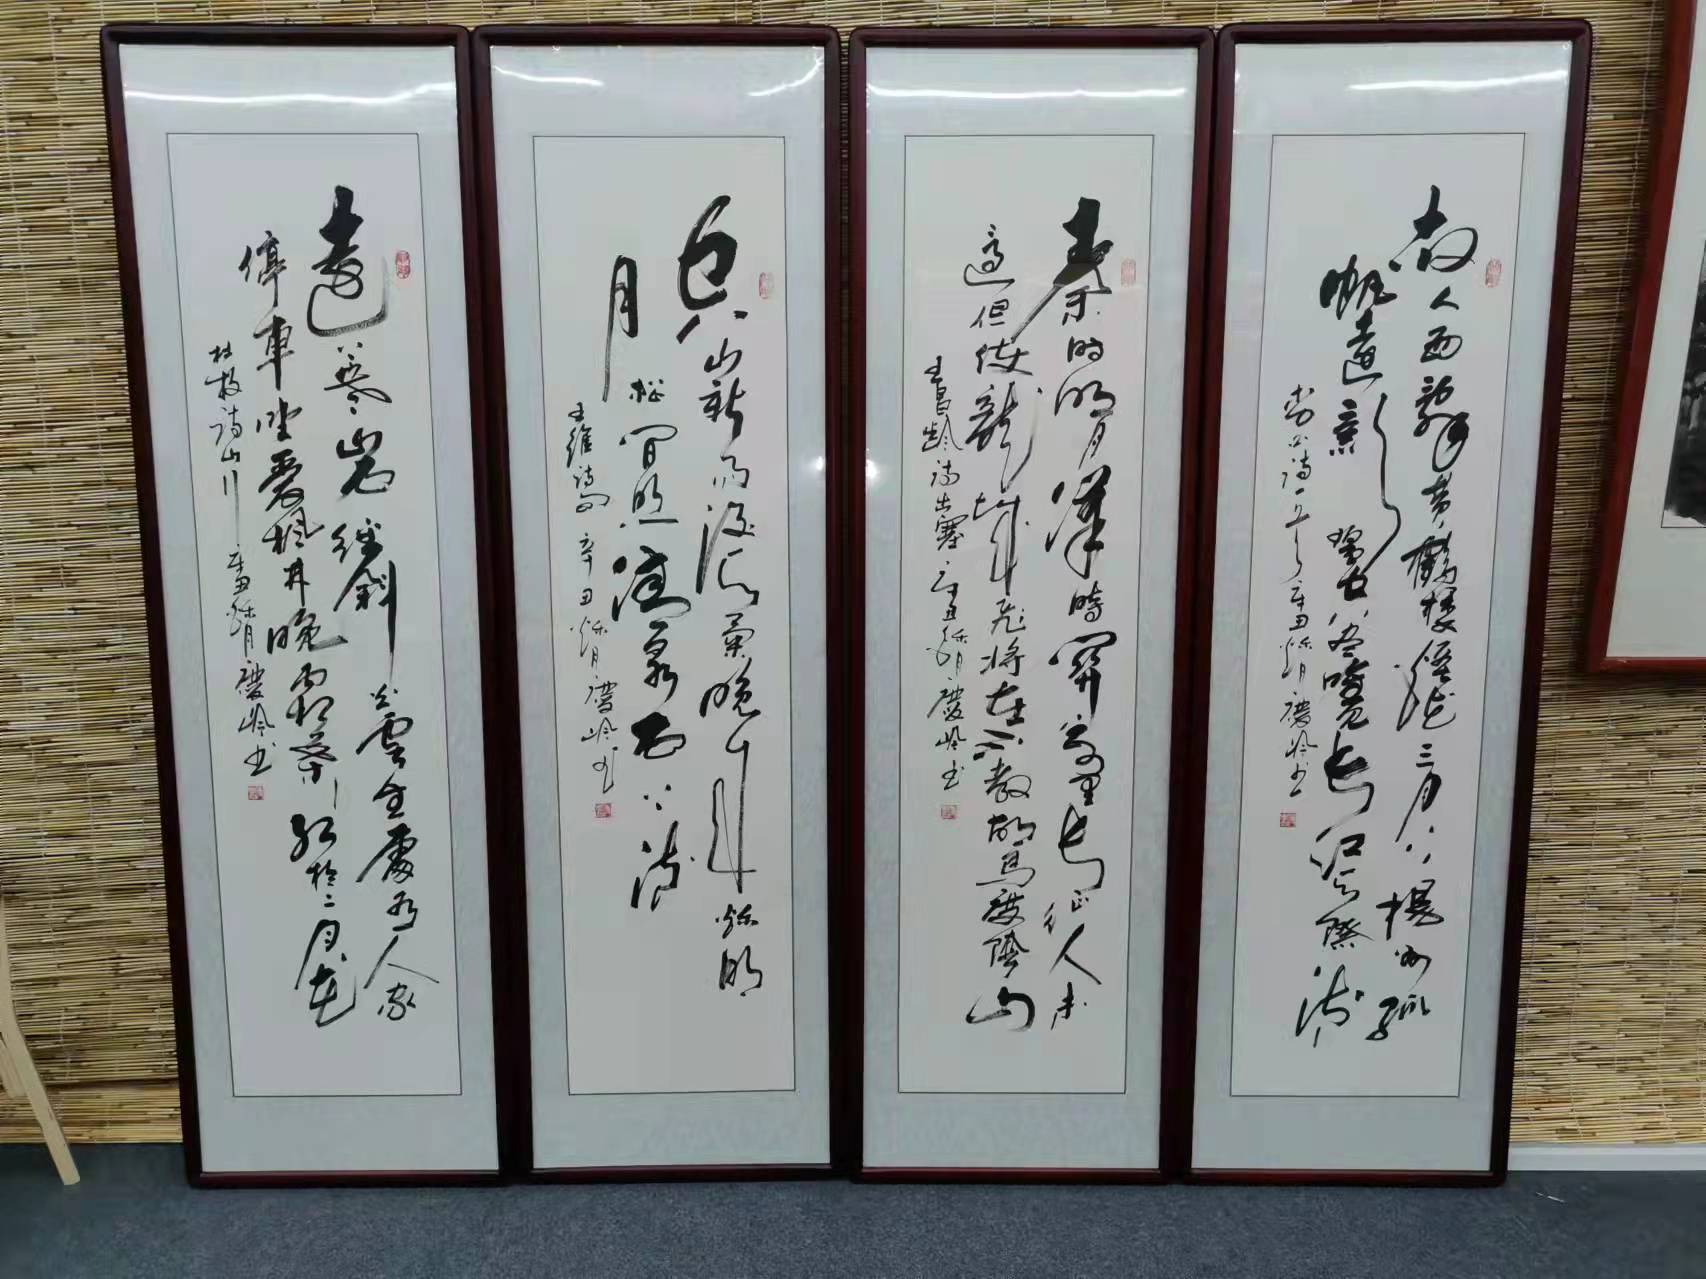 故人西辭黄鶴楼煙花三月下揚州孤
帆遠影碧空尽唯見长江天際流
李白诗一首辛丑秋月慶岭书
秦时明月漢時関万里长征人未
還但使龍城飞将在不教胡馬度陰山
王昌龄诗出塞辛丑秋月慶岭书
空山新雨後天氣晚来秋明
月松間照清泉石上流
王維诗句辛丑秋月慶岭书
遠上寒山石径斜白雲生處有人家
停車坐愛楓林晚霜葉红於二月花
杜牧诗山行辛丑秋月慶岭书